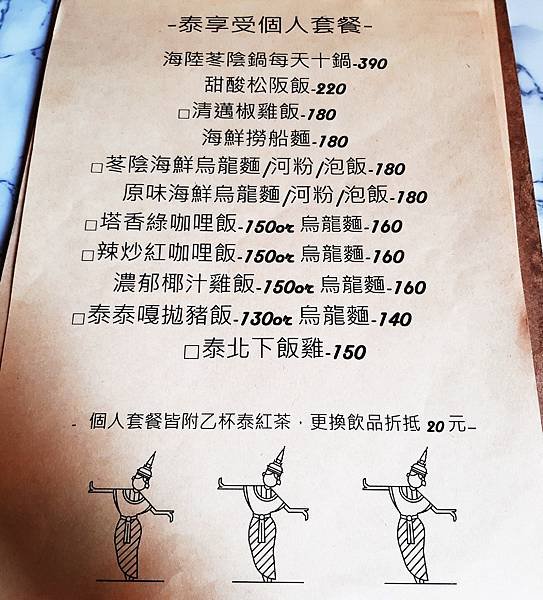 -泰享受個人套餐-
海陸苳陰鍋每天十鍋-390
甜酸松阪飯-220
□清邁椒雞飯-180
海鮮撈船麵-180
□苳陰海鮮烏龍麵/河粉/泡飯-180
原味海鮮烏龍麵/河粉/泡飯-180
□塔香綠咖哩飯-150or烏龍麵-160
□辣炒紅咖哩飯-150or烏龍麵-160
濃郁椰汁雞飯-150or烏龍麵-160
□泰泰嘎拋豬飯-130or烏龍麵-140
□泰北下飯雞-150
- 個人套餐皆附乙杯泰紅茶，更換飲品折抵 20元-